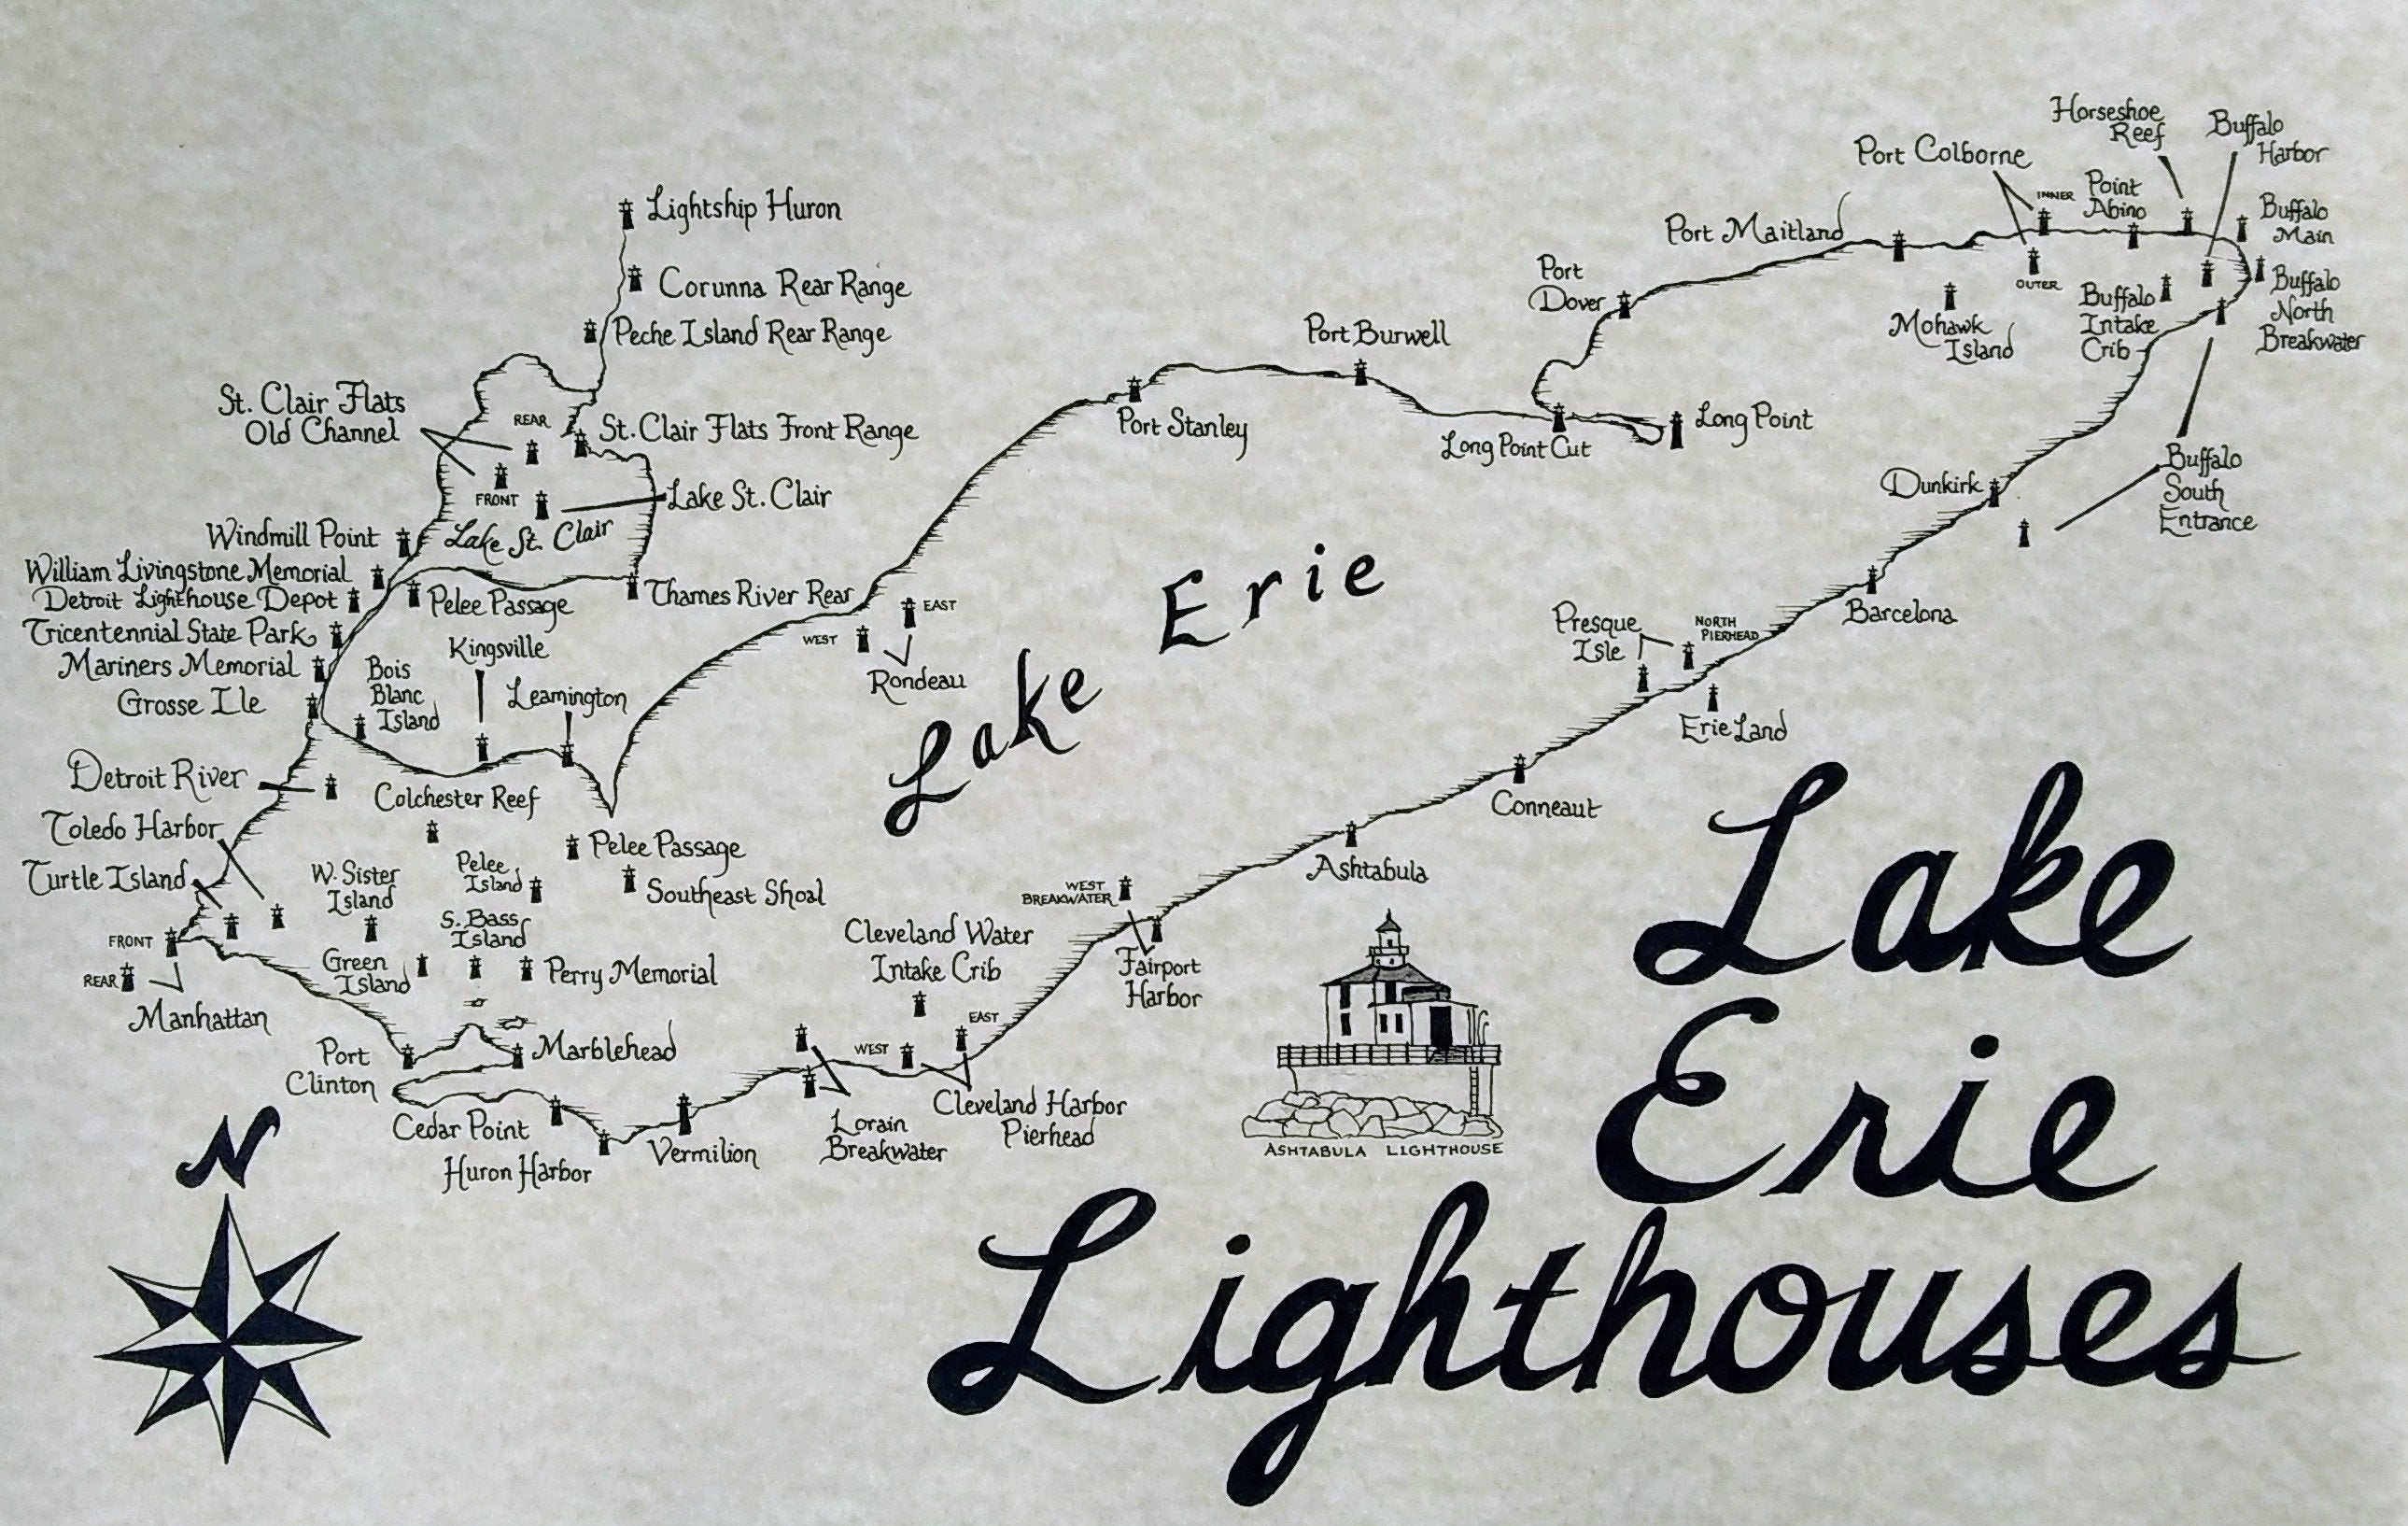 Horseshoe
Reef
Buffalo
Harbor
Port Colborne
INNER
Point
Abino
Buffalo
Main
Port Maitland
OUTER
Buffalo
Intake
Crib
Buffalo
North
Breakwater
Mohawk
Island
Port
Dover
Lightship Huron
Corunna Rear Range
Peche Island Rear Range
Port Burwell
St. Clair Flats
Old Channel
REAR
St. Clair Flats Front Range
FRONT
Lake St. Clair
Lake St. Clair
Port Stanley
Long Point Cut
Long Point
Dunkirk
Buffalo
South
Entrance
Windmill Point
William Livingstone Memorial
Detroit Lighthouse Depot
Pelee Passage
Thames River Rear
Tricentennial State Park
Mariners Memorial
Grosse Ile
Kingsville
Bois
Blanc
Island
Leamington
WEST
EAST
Rondeau
Lake Erie
Barcelona
Presque
Isle
NORTH
PIERHEAD
Erie Land
Detroit River
Colchester Reef
Conneaut
Toledo Harbor
Turtle Island
W. Sister
Island
Pelee
Island
Pelee Passage
Southeast Shoal
Ashtabula
WEST
BREAKWATER
Fairport
Harbor
FRONT
REAR
Manhattan
S. Bass
Island
Green
Island
Perry Memorial
Cleveland Water
Intake Crib
Port
Clinton
Marblehead
WEST
EAST
Cedar Point
Huron Harbor
Vermilion
Lorain
Breakwater
Cleveland Harbor
Pierhead
ASHTABULA LIGHTHOUSE
N
Lake
Erie
Lighthouses